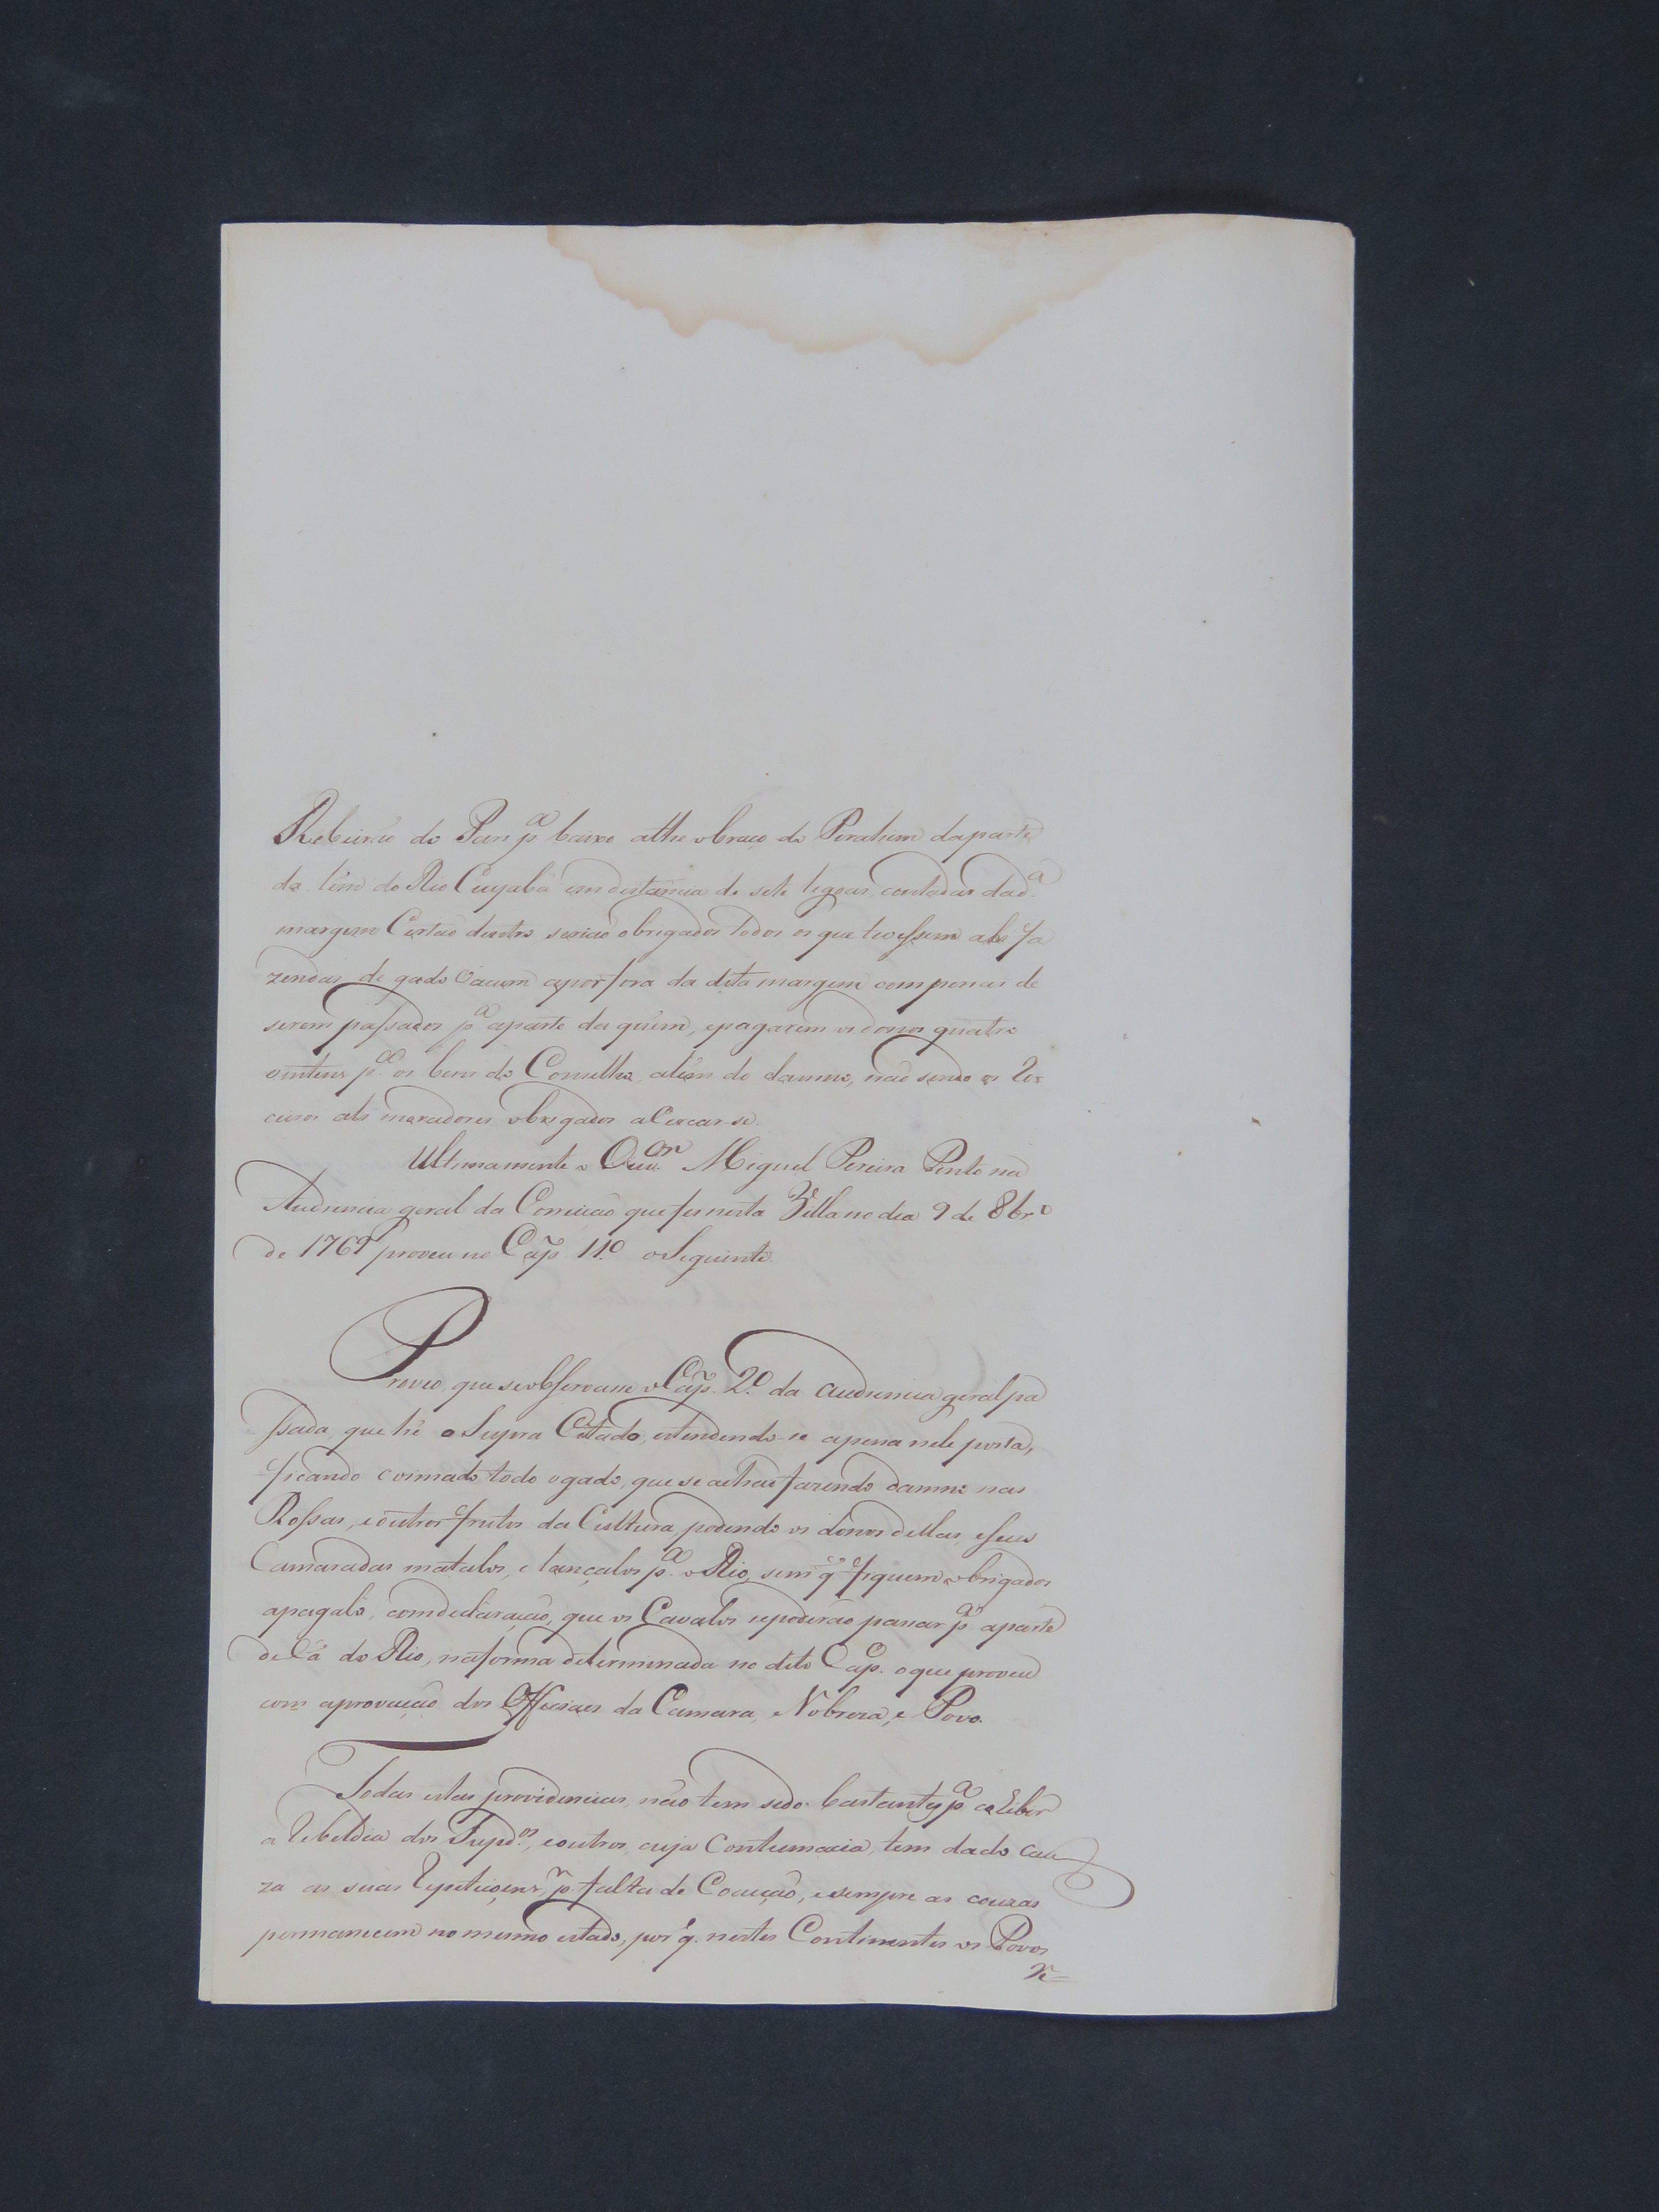 Ribeirão do Pari p.ª baixo athe o braço do Pirahim da parte
da lém do Rio Cuyabá em distancia de sete legoas, contadas da d.ª
margem Certão dentro serião obrigados todos os que tivessem ahi fa
zendas de gado Vacum a por fora da dita margem com penas de
serem passados p.ª a parte da quém, e pagarem os donos quatro
vintens p.ª os bens do Conselho, alem do damno, não sendo os
 ahi moradores obrigados a Cercar-se.
Ultimamente o Ouv.or Miguel Pereira Pinto na
Audiencia geral da Correição que fes nesta Villa no dia 9 de 8br.º
de 1769 proveu no Cap. 11.º o Seguinte.
Proveo, que se observasse o Cap. 2.º da audiencia geral pa
ssada, que hé o Supra Citado, estendendo-se a pena nele posta,
ficando coimado todo o gado, que se achar fazendo damno nas
Rossas, e outros frutos da Cultura, podendo os donos dellas, e seus
Camaradas matalos, e lançalos p.ª o Rio, sem q' fiquem obrigados
a pagalo, com declaração, que os Cavalos se poderão passar p.ª a parte
de Cá do Rio, na forma determinada no dito Cap. o que proveu
com aprovação dos Officiaes da Camara, e Nobreza, e Povo.
Todas estas providencias, não tem sido bastantes p.ª cohibir
a rebeldia dos Supd.os, e outros, cuja Contumacia, tem dado cau
za as suas repetiçoens, p.r falta de Coacção, e sempre as couzas
permanecem no mesmo estado, por q. nestes Continentes os Povos